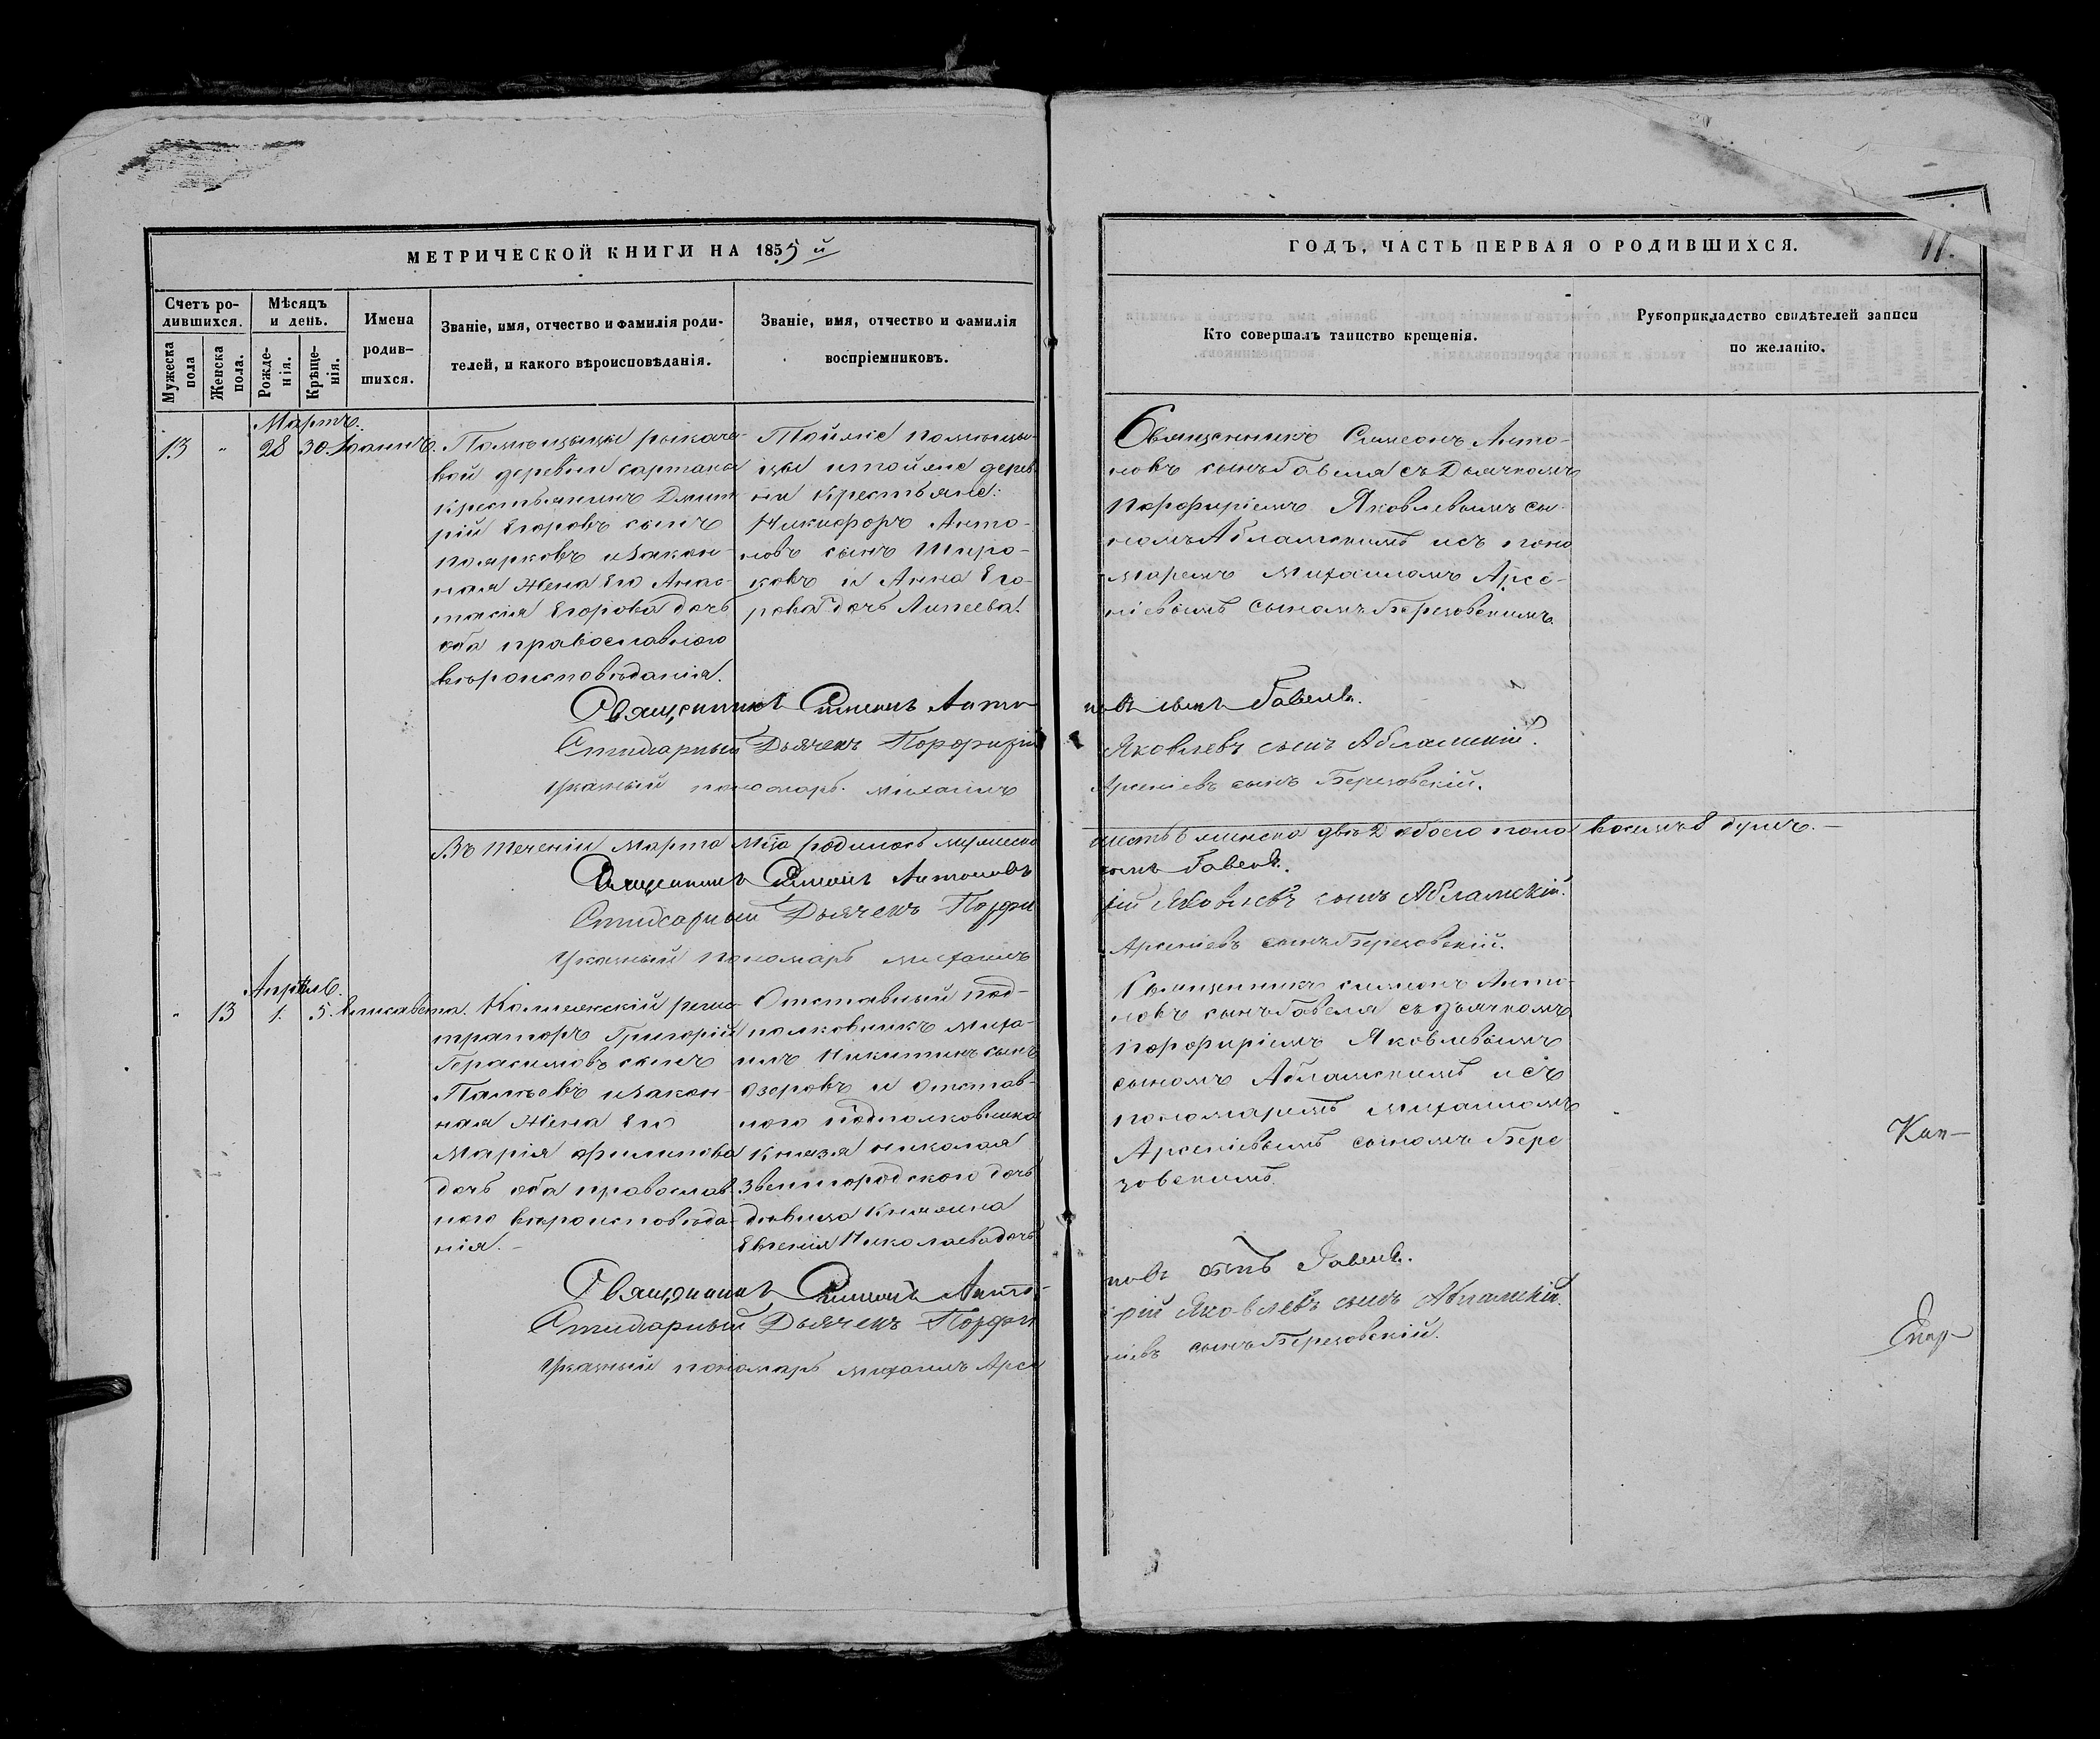 МЕТРИЧЕСКОЙ КНИГИ НА 1855 й
Счетъ ро-
дившихся.
Мужеска
пола
Женска
пола.
Мѣсяцъ
и день.
Рожде-
нія.
Крѣще-
нія.
Имена
родив-
шихся.
Званіе, имя, отчество и фамилія роди-
телей, и какого вѣроисповѣданія.
Званіе, имя, отчество и фамилія
воспріемниковъ.
ГОДЪ, ЧАСТЬ ПЕРВАЯ О РОДИВШИХСЯ.
11.
Кто совершалъ таинство крещенія.
Рукоприкладство свидѣтелей записи
по желанію.
Мартъ.
13 „ 28 30. Іоаннъ.
Помѣщицы рыкаче-
вой деревни
крестьянинъ Дмит-
рій Егоровъ сынъ
поярковъ изакон-
ная жена Его Анас-
тасія Егорова дочь
оба православного
вѣроисповѣданія.
Тойже помѣщи-
цы итойже дерев-
ни крестьяне:
Никифоръ Анто-
новъ сынъ Широ-
ковъ и Анна Его-
рова дочь
Священникъ Симеонъ Анто-
новъ сынъ Гавеля съ Дьячкомъ
Порфиріемъ Яковлевымъ сы-
номъ Абламскимъ исъ поно
маремъ Михаиломъ Арсе-
ніевымъ сыномъ Березовскимъ.
Священникъ Симеонъ Анто
новъ сынъ Гавеля.
Стихарный Дьячекъ Порфирій
Яковлевъ сынъ Абламскій.
Указный пономарь михаилъ
Арсеніевъ сынъ Березовскій.
Въ теченіи Марта Мѣца родилось мужеска
шесть 6 женска двѣ 2 обоего пола восемь 8 душъ.—
Священникъ Симеонъ Антоновъ
сынъ Гавеля.
Стихарный Дьячекъ Порфи
рій Яковлевъ сынъ Абламскій.
Указный пономарь михаилъ
Арсеніевъ сынъ Березовскій.
Апрѣль.
„ 13 1. 5. Елисавета.
Коллежскій регис-
траторъ Григорій
Герасимовъ сынъ
изакон-
ная жена Его
Марія филипова
дочь оба православ
ного вѣроисповѣда-
нія.—
Отставный под-
полковникъ миха-
илъ Никитинъ сынъ
Озеровъ и отстав-
ного подполковника
Князя николая
Звенигородского дочь
дѣвица Княжна
Евгенія Николаева дочь
Священникъ симеонъ Анто-
новъ сынъ Гавеля съ дьячкомъ
порфиріемъ Яковлевымъ
сыномъ Абламскимъ исъ
пономаремъ михаиломъ
Арсеніевымъ сыномъ Бере
зовскимъ.
Священникъ Симеонъ Анто-
новъ сынъ Гавеля.
Стихарный Дьячекъ Порфи
рій Яковлевъ сынъ Абламскій.
Указный пономарь михаилъ Арсе
ніевъ сынъ Березовскій.